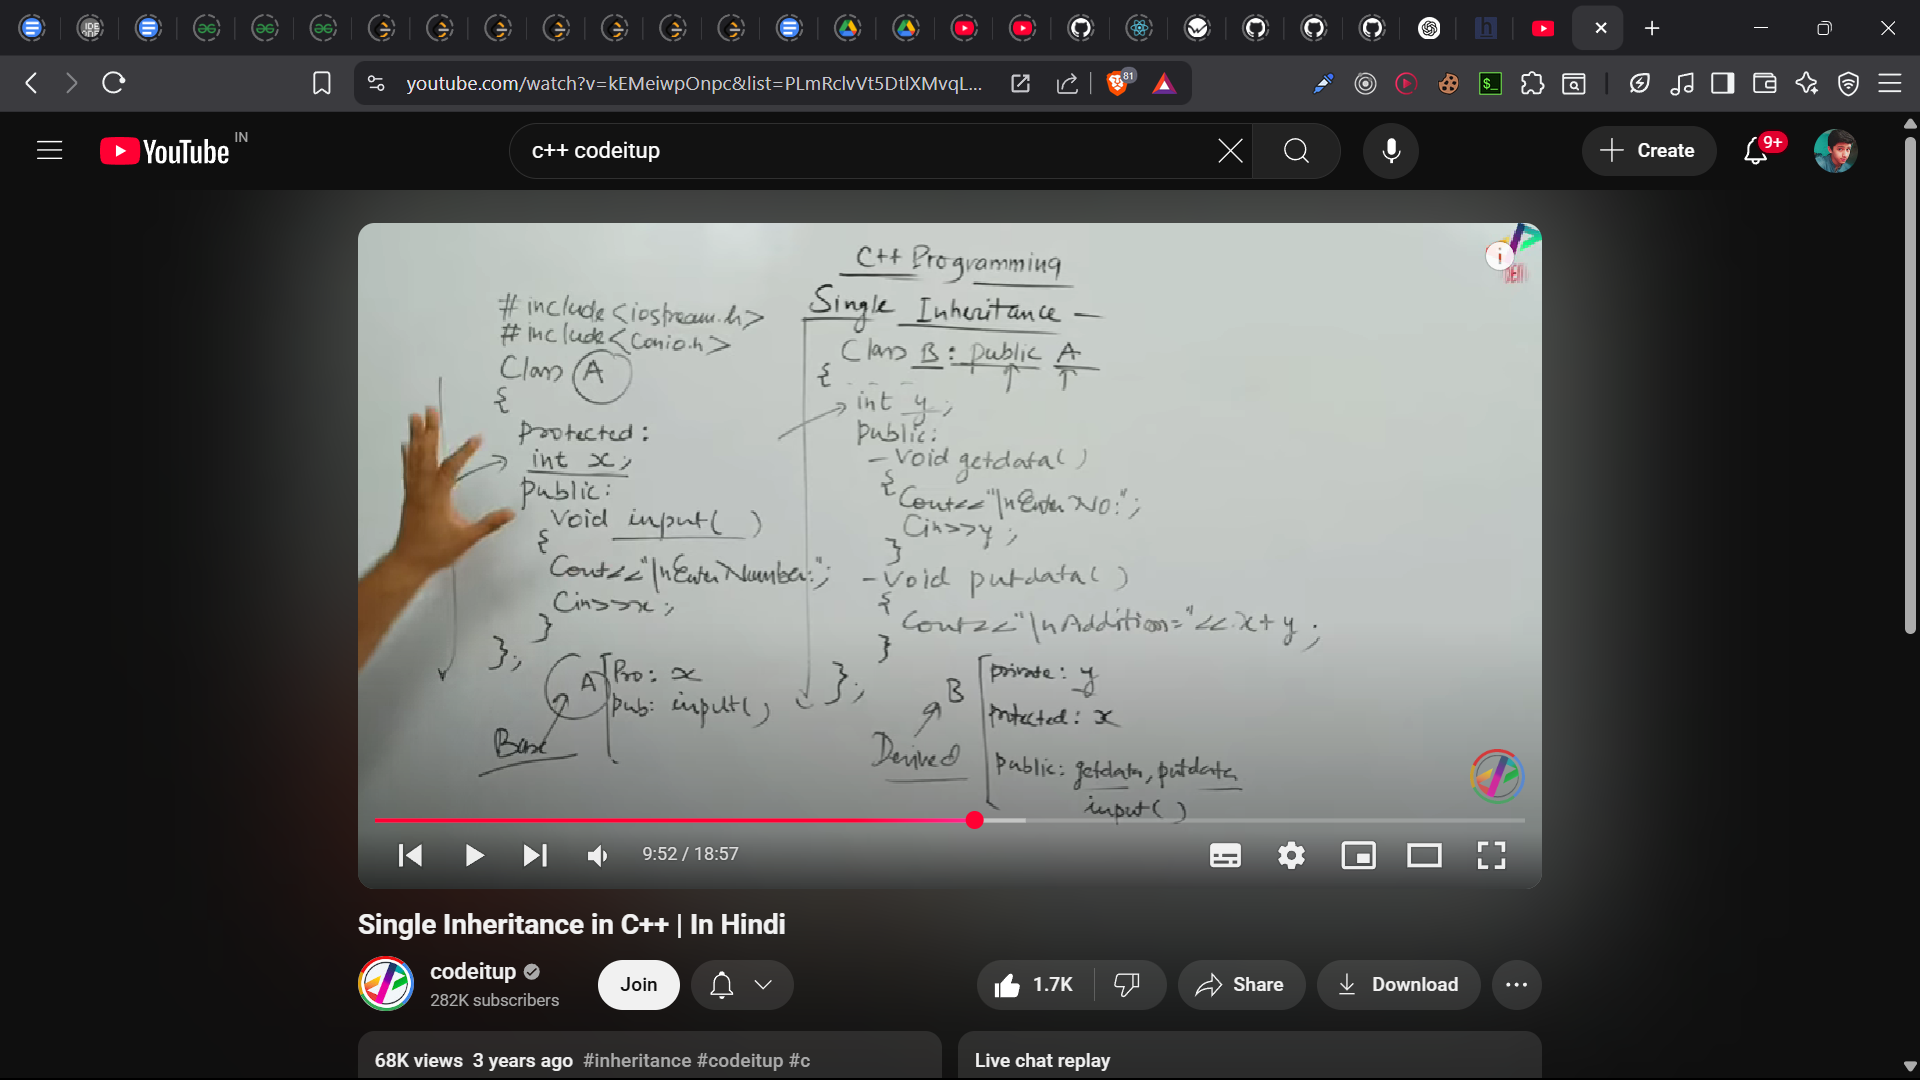 youtube.com/watch?v=kEMeiwpOnpc&list=PLmRclvVt5DtlXMvqL...
81
YouTube IN
c++ codeitup
Create
9+
C++ Programming
Single Inheritance
#include<iostream.h>
#include<conio.h>
Class A
{
Protected:
int x;
Public:
Void input( )
{
Cout<<"\nEnter Number:";
Cin>>x;
}
};
A
Pro: x
Pub: input( )
Base
Class B: public A
{
int y;
Public:
- Void getdata( )
{
Cout<<"\nEnter NO:";
Cin>>y;
}
- Void putdata( )
{
Cout<<"\nAddition="<<x+y;
}
};
B
Derived
private: y
protected: x
Public: getdata, putdata
input( )
9:52 / 18:57
Single Inheritance in C++ | In Hindi
codeitup
282K subscribers
Join
1.7K
Share
Download
68K views 3 years ago #inheritance #codeitup #c
Live chat replay